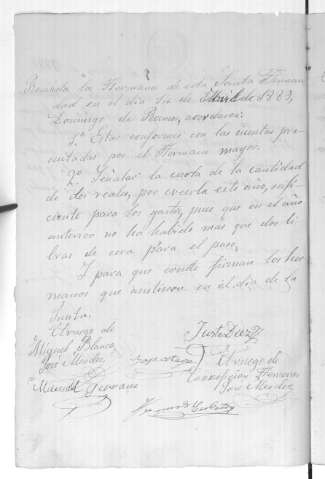 Reunida la Hermandad de esta Santa Herman
dad en el dia 1o de Abril de 1882,
Domingo de Ramos, acordaron:
1º Estar conforme con las cuentas pre
sentadas por el Hermano mayor.
2º Señalar la cuota de la cantidad
de dos reales, por creerla este año, sufi
ciente para los gastos, pues que en el año
anterior no ha habido mas que dos li
bras de cera para el paso.
Y para que conste firman los her
manos que asistieron en el dia de la
Junta.
El ruego de
Miguel Blanco
José Mendez
Justo Diaz
El ruego de
Concepcion
José Mendez
Manuel